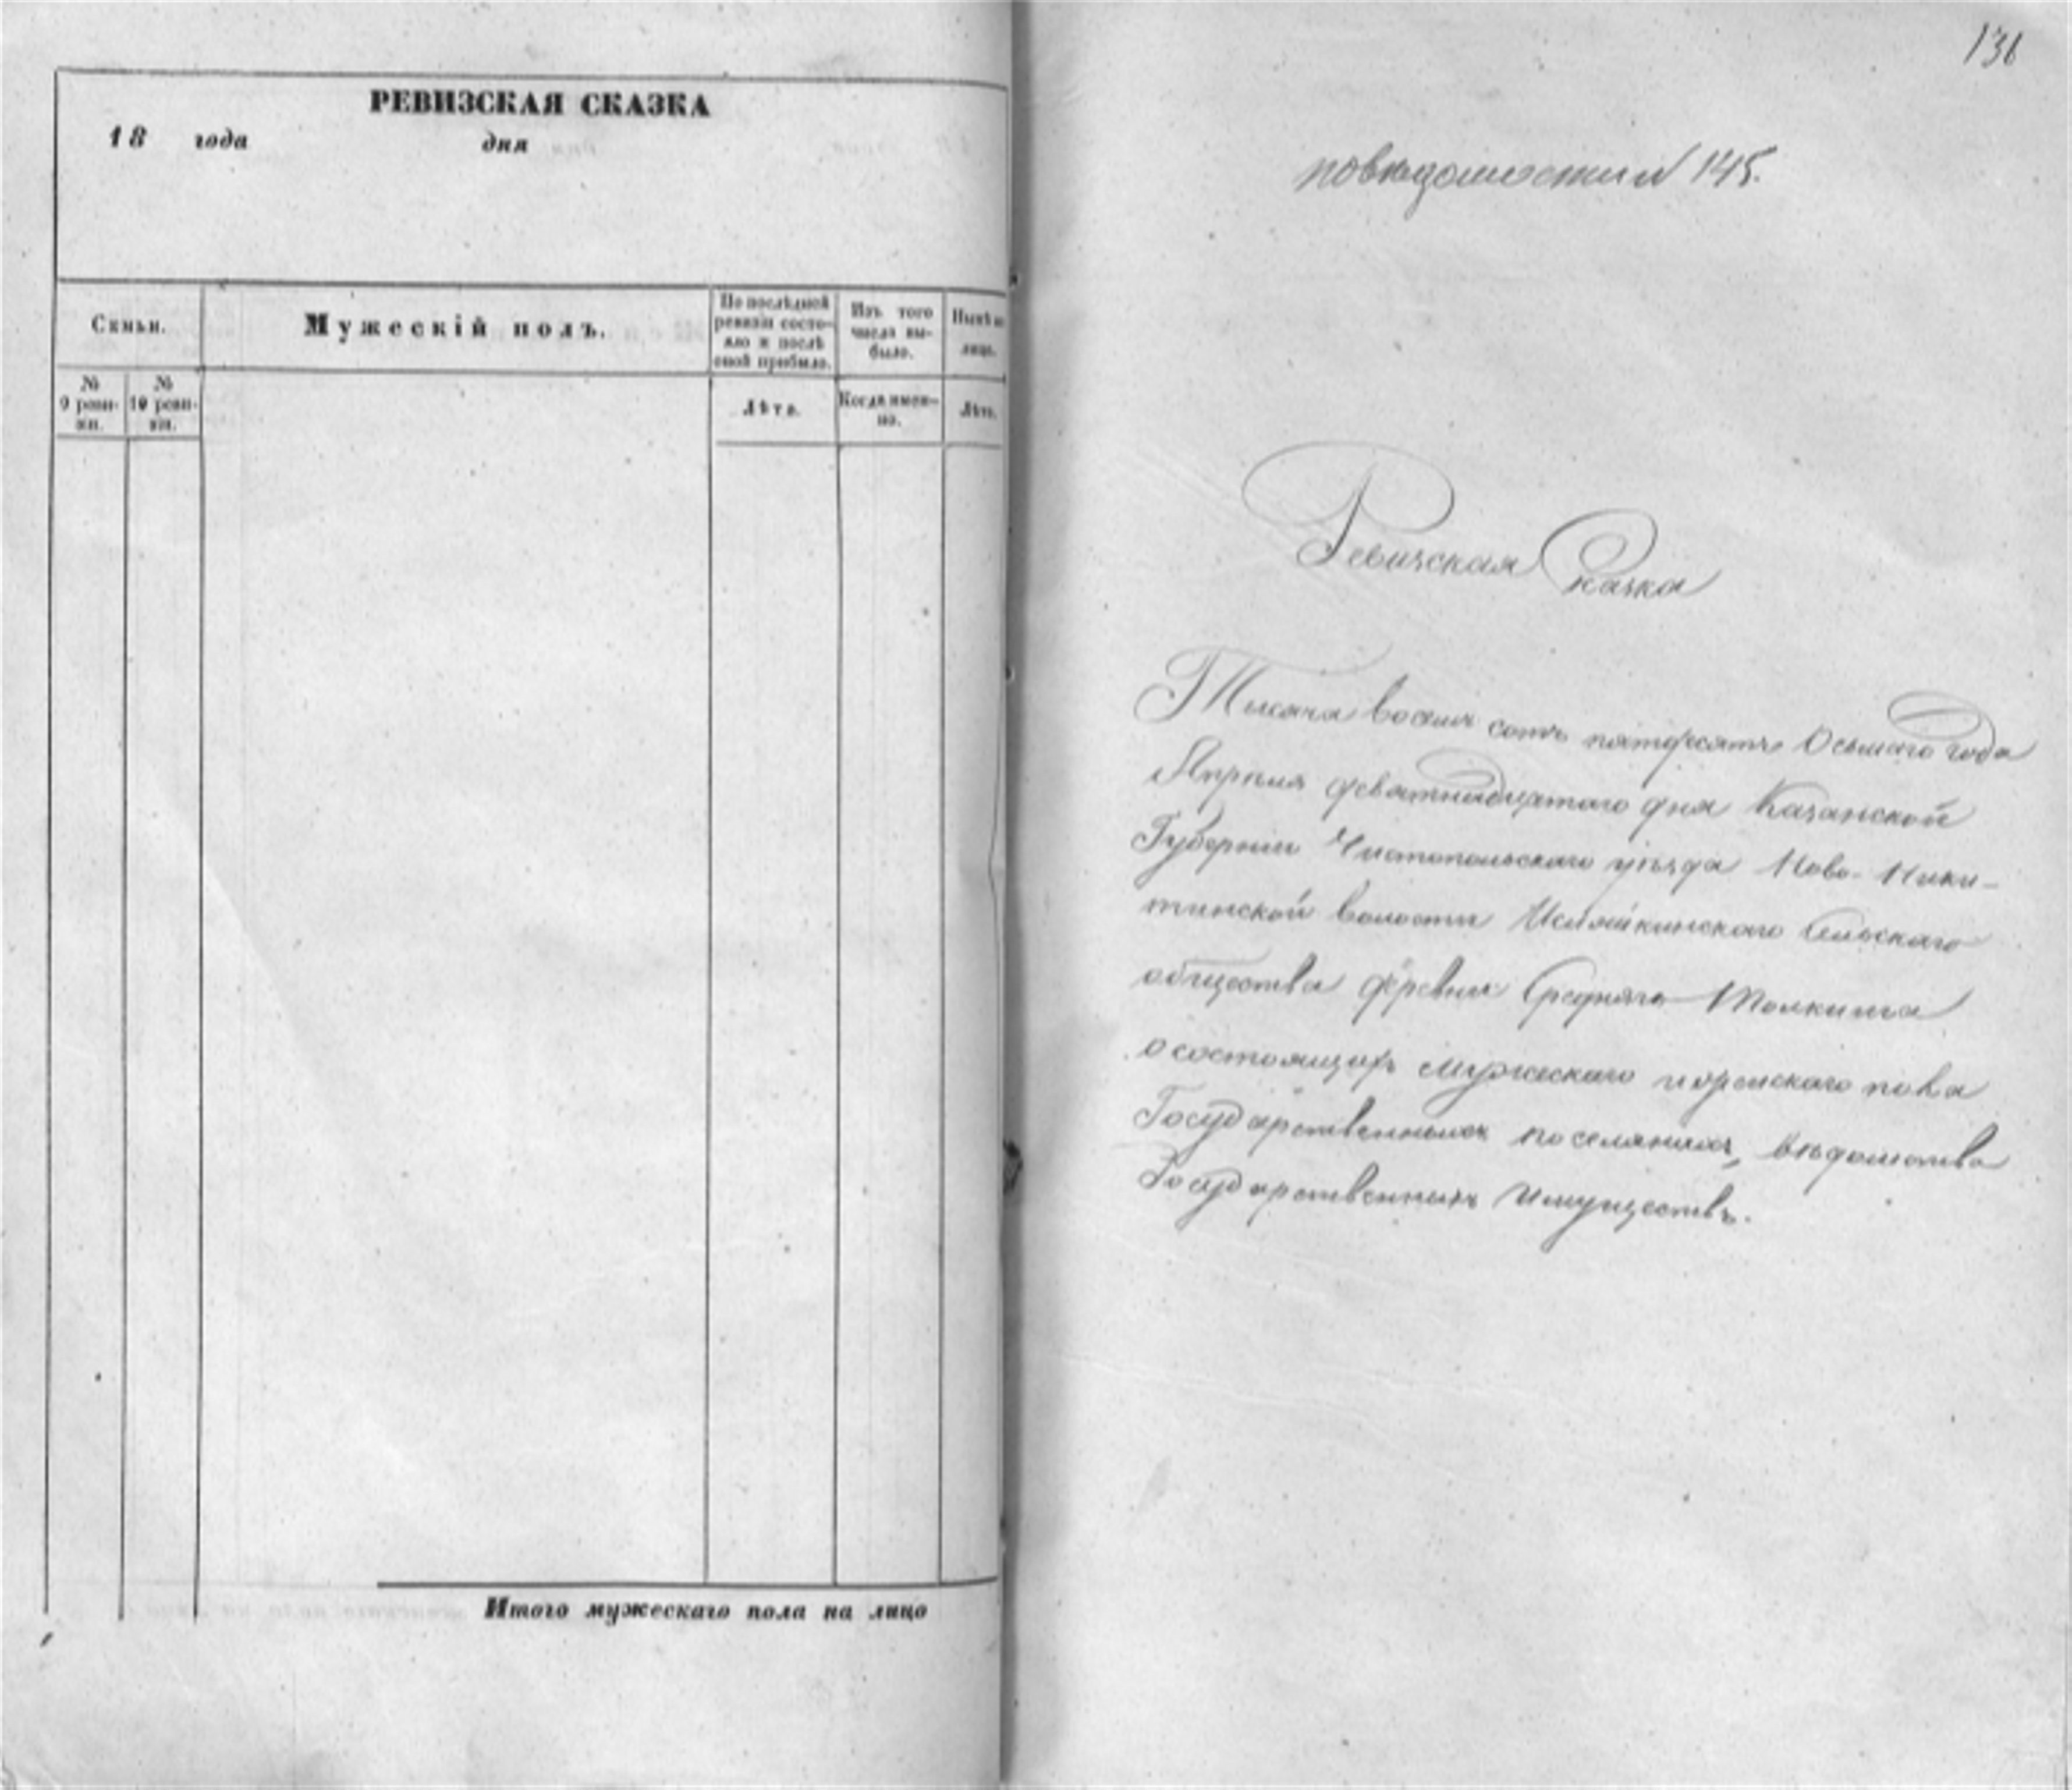 РЕВИЗСКАЯ СКАЗКА
18 года дня
Семьи.
№ 9 реви-
зіи.
№ 10 реви-
зіи.
Мужескій полъ.
По послѣдней
ревизіи состо-
яло и послѣ
оной прибыло.
Лѣта.
Изъ того
числа вы-
было.
Когда имен-
но.
Нынѣ на
лицо.
Лѣта.
Итого мужескаго пола на лицо
136
по вѣдомости № 145.
Ревизская Сказка
Тысяча восемь сотъ пятдесятъ Осьмаго года
Апрѣля девятнадцатаго дня Казанской
Губерніи Чистопольскаго уѣзда Ново-Ники-
тинской волости Исляйкинскаго Сельскаго
общества деревни Средняго Толкиша
о состоящихъ мужескаго и женскаго пола
Государственныхъ поселянахъ, вѣдомства
Государственныхъ Имуществъ.